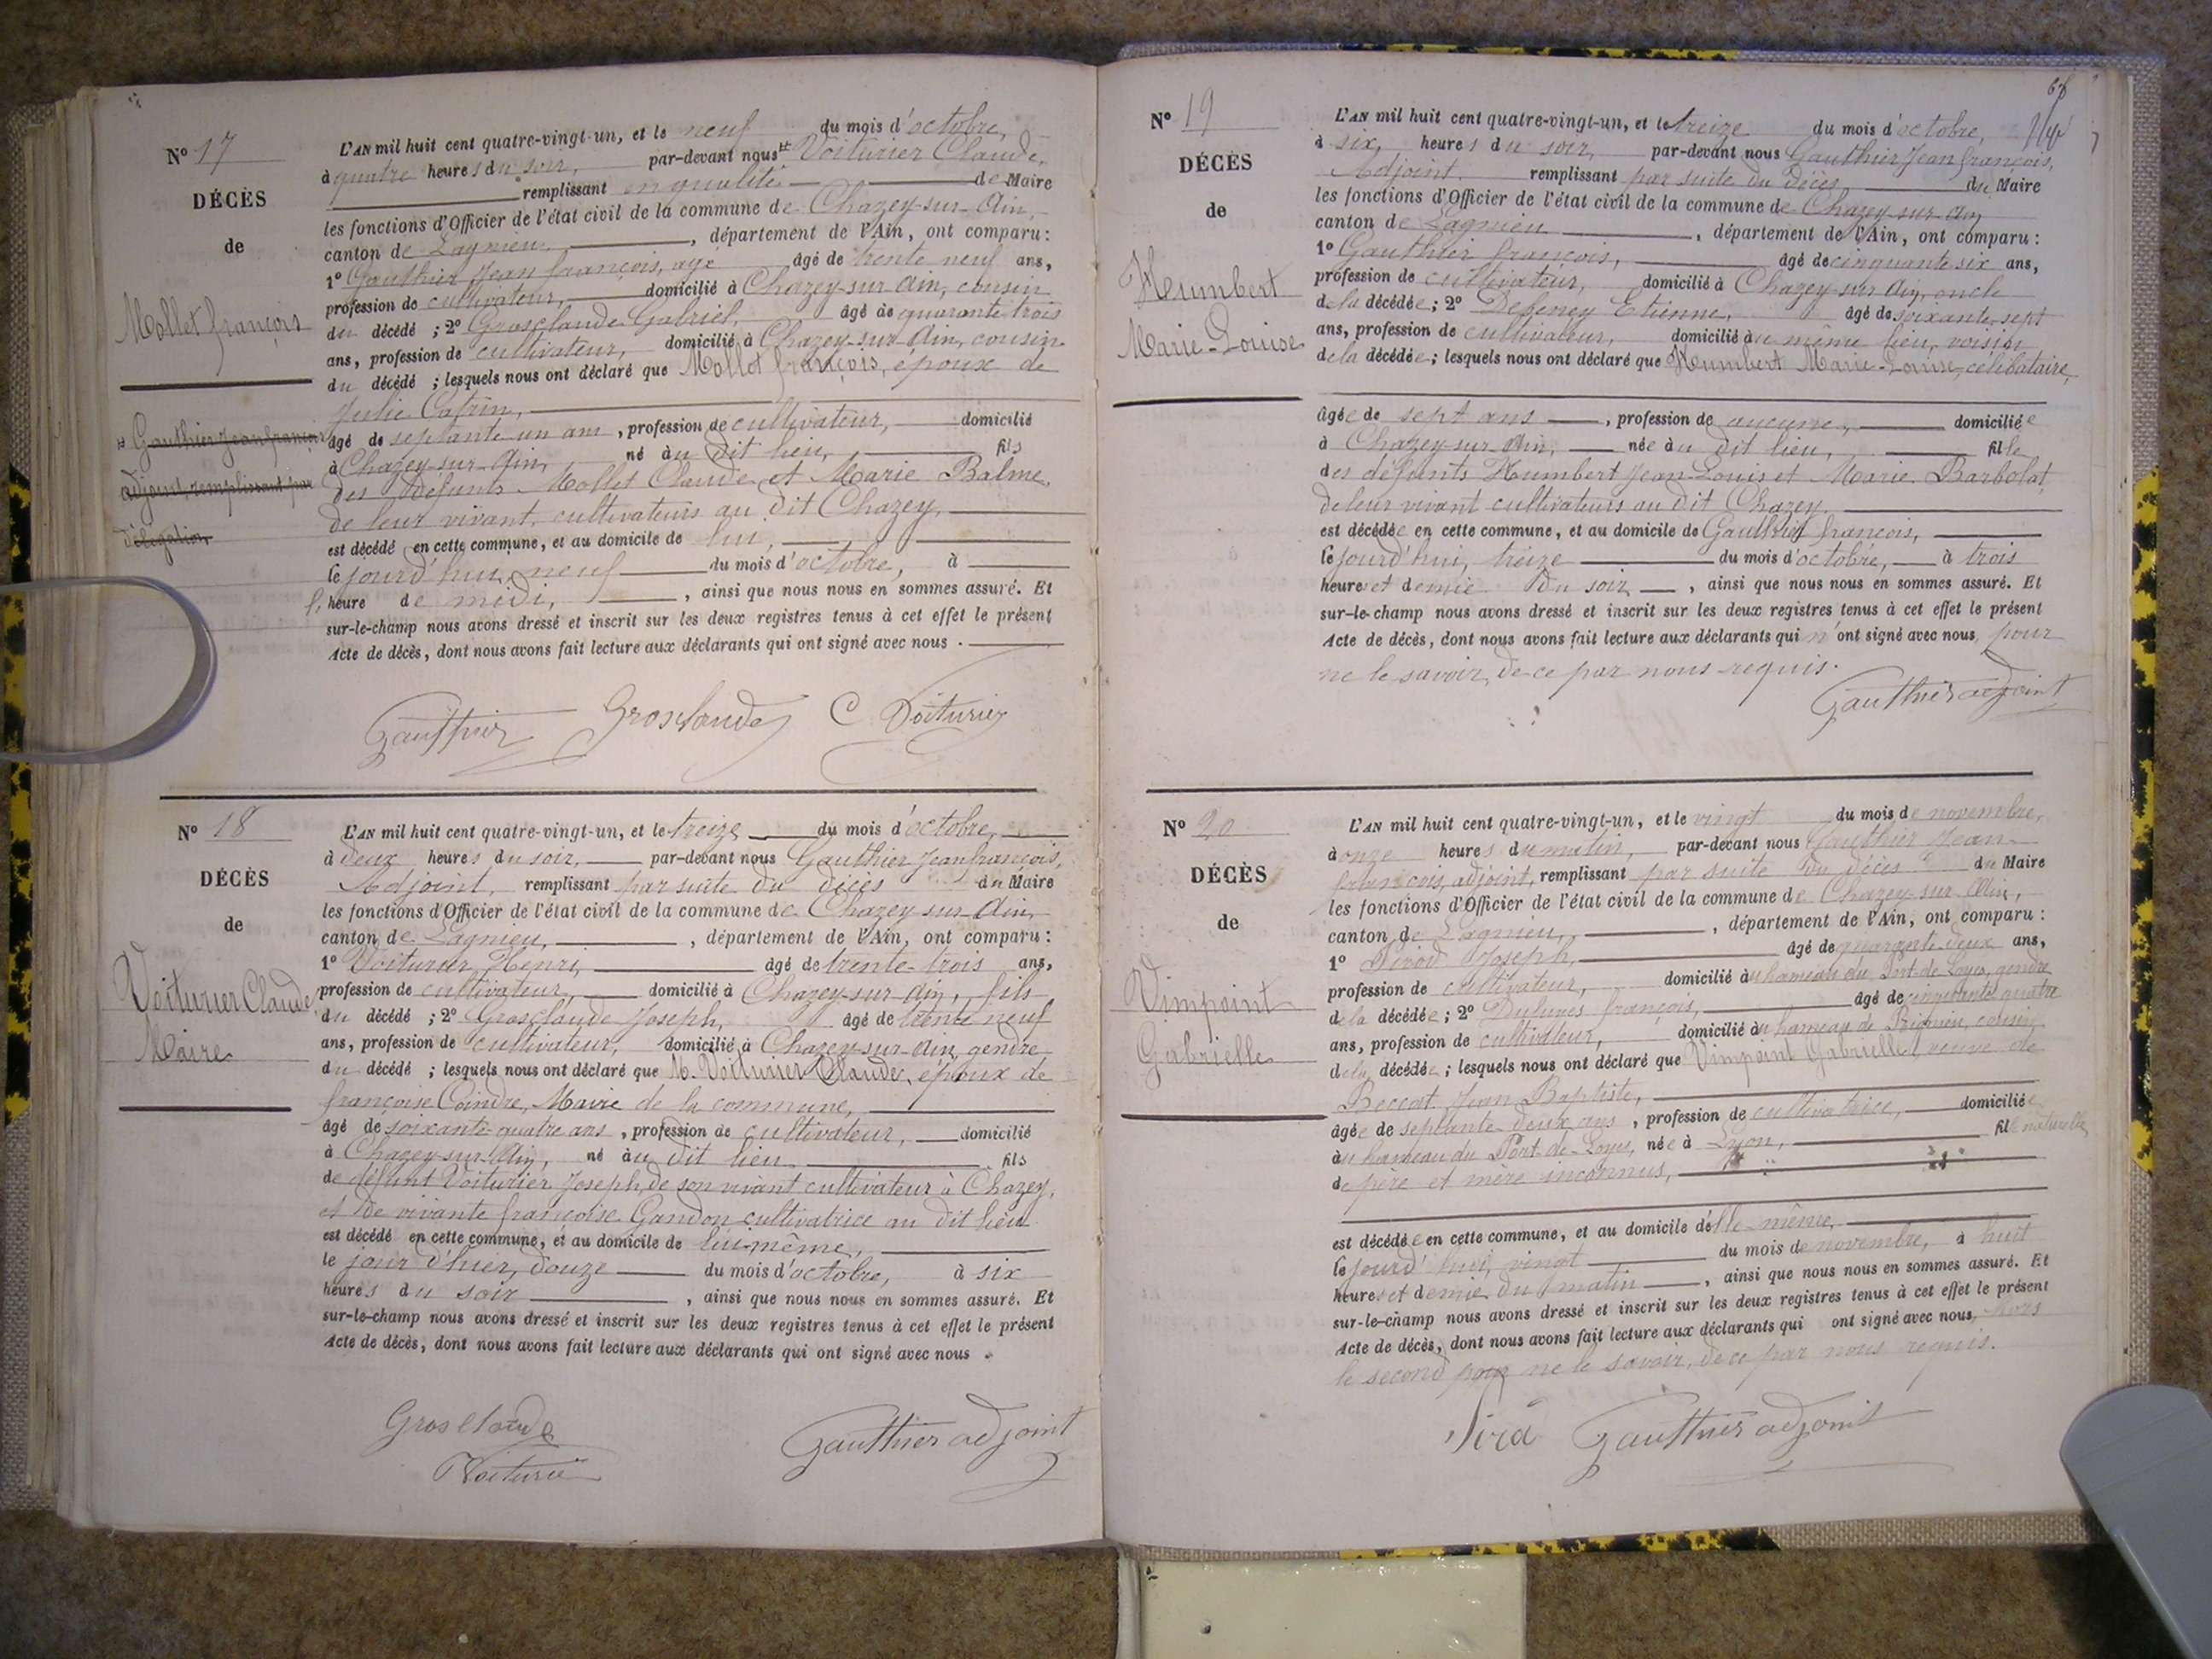 N° 17
DÉCÈS
de
Mollet françois
L'AN mil huit cent quatre-vingt-un, et le neuf du mois d'octobre,
à quatre heures du soir, par-devant nous Voiturier Claude,
remplissant en qualité de Maire
les fonctions d'Officier de l'état civil de la commune de Chazey-sur-Ain,
canton de Lagnieu, département de l'Ain, ont comparu :
1° Gauthier Jean françois, agé âgé de trente neuf ans,
profession de cultivateur, domicilié à Chazey-sur-Ain, cousin
du décédé ; 2° Grosclaude Gabriel, âgé de quarante trois
ans, profession de cultivateur, domicilié à Chazey-sur-Ain, cousin
du décédé ; lesquels nous ont déclaré que Mollet françois, époux de
Julie
Gauthier Jean françois
adjoint, remplissant par
délégation,
âgé de septante un ans, profession de cultivateur, domicilié
à Chazey-sur-Ain, né au dit lieu, fils
des défunts Mollet Claude et Marie Balme,
de leur vivant cultivateurs au dit Chazey,
est décédé en cette commune, et au domicile de lui,
le jourd'hui, neuf du mois d'octobre, à
heure de midi, ainsi que nous nous en sommes assuré. Et
sur-le-champ nous avons dressé et inscrit sur les deux registres tenus à cet effet le présent
Acte de décès, dont nous avons fait lecture aux déclarants qui ont signé avec nous.
Gauthier Grosclaude C Voiturier
N° 18
DÉCÈS
de
Voiturier Claude
Maire
L'AN mil huit cent quatre-vingt-un, et le treize du mois d'octobre,
à deux heures du soir, par-devant nous Gauthier Jean françois,
Adjoint, remplissant par suite du décès du Maire
les fonctions d'Officier de l'état civil de la commune de Chazey-sur-Ain,
canton de Lagnieu, département de l'Ain, ont comparu :
1° Voiturier Henri, âgé de trente-trois ans,
profession de cultivateur, domicilié à Chazey-sur-Ain, fils
du décédé ; 2° Grosclaude Joseph, âgé de trente neuf
ans, profession de cultivateur, domicilié à Chazey-sur-Ain, gendre
du décédé ; lesquels nous ont déclaré que M. Voiturier Claude, époux de
françoise Coindre, Maire de la commune,
âgé de soixante-quatre ans, profession de cultivateur, domicilié
à Chazey-sur-Ain, né au dit lieu fils
de défunt Voiturier Joseph, de son vivant cultivateur à Chazey,
et de vivante françoise Gandon cultivatrice au dit lieu
est décédé en cette commune, et au domicile de lui-même,
le jour d'hier, douze du mois d'octobre, à six
heures du soir, ainsi que nous nous en sommes assuré. Et
sur-le-champ nous avons dressé et inscrit sur les deux registres tenus à cet effet le présent
Acte de décès, dont nous avons fait lecture aux déclarants qui ont signé avec nous.
Grosclaude Gauthier adjoint
Voiturier
68
N° 19
DÉCÈS
de
Humbert
Marie-Louise
L'AN mil huit cent quatre-vingt-un, et le treize du mois d'octobre,
à six, heures du soir, par-devant nous Gauthier Jean françois,
Adjoint, remplissant par suite du décès du Maire
les fonctions d'Officier de l'état civil de la commune de Chazey-sur-Ain
canton de Lagnieu, département de l'Ain, ont comparu :
1° Gauthier françois, âgé de cinquante six ans,
profession de cultivateur, domicilié à Chazey-sur-Ain, oncle
de la décédée ; 2° Debeney Etienne, âgé de soixante-sept
ans, profession de cultivateur, domicilié au même lieu, voisin
de la décédée ; lesquels nous ont déclaré que Humbert Marie-Louise, célibataire,
âgée de sept ans, profession de aucune, domiciliée
à Chazey-sur-Ain, née au dit lieu, fille
des défunts Humbert Jean-Louis et Marie Barbolat
de leur vivant cultivateurs au dit Chazey,
est décédée en cette commune, et au domicile de Gauthier françois,
le jourd'hui, treize du mois d'octobre, à trois
heures et demie du soir, ainsi que nous nous en sommes assuré. Et
sur-le-champ nous avons dressé et inscrit sur les deux registres tenus à cet effet le présent
Acte de décès, dont nous avons fait lecture aux déclarants qui n'ont signé avec nous, pour
ne le savoir, de ce par nous requis.
Gauthier adjoint
N° 20
DÉCÈS
de
Vimpoint
Gabrielle
L'AN mil huit cent quatre-vingt-un, et le vingt du mois de novembre,
à onze heures du matin, par-devant nous Gauthier Jean-
françois, adjoint, remplissant par suite du décès du Maire
les fonctions d'Officier de l'état civil de la commune de Chazey-sur-Ain,
canton de Lagnieu, département de l'Ain, ont comparu :
1° Joseph, âgé de quarante-deux ans,
profession de cultivateur, domicilié au hameau du Port-de-Loyes, gendre
de la décédée ; 2° françois, âgé de cinquante quatre
ans, profession de cultivateur, domicilié au hameau de cousin
de la décédée ; lesquels nous ont déclaré que Vimpoint Gabrielle, veuve de
Beccat Jean Baptiste,
âgée de septante-deux ans, profession de cultivatrice, domiciliée
au hameau du Port-de-Loyes, née à Lyon, fille naturelle
de père et mère inconnus,
est décédée en cette commune, et au domicile d'elle-même,
le jourd'hui, vingt du mois de novembre, à huit
heures et demie du matin, ainsi que nous nous en sommes assuré. Et
sur-le-champ nous avons dressé et inscrit sur les deux registres tenus à cet effet le présent
Acte de décès, dont nous avons fait lecture aux déclarants qui ont signé avec nous, hors
le second pour ne le savoir, de ce par nous requis.
Gauthier adjoint